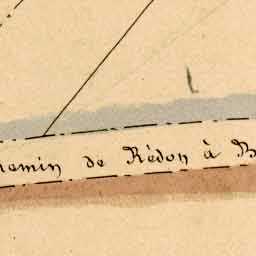 hemin de Rédon à B